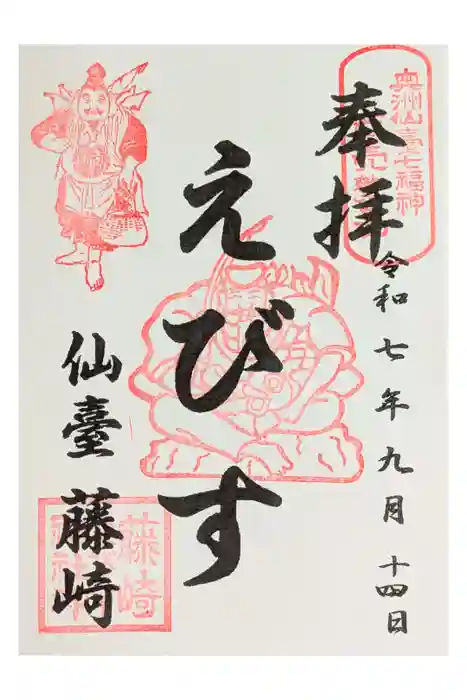 奉拝
奥州仙臺七福神
令和七年九月十四日
えびす
仙臺
藤崎
藤崎